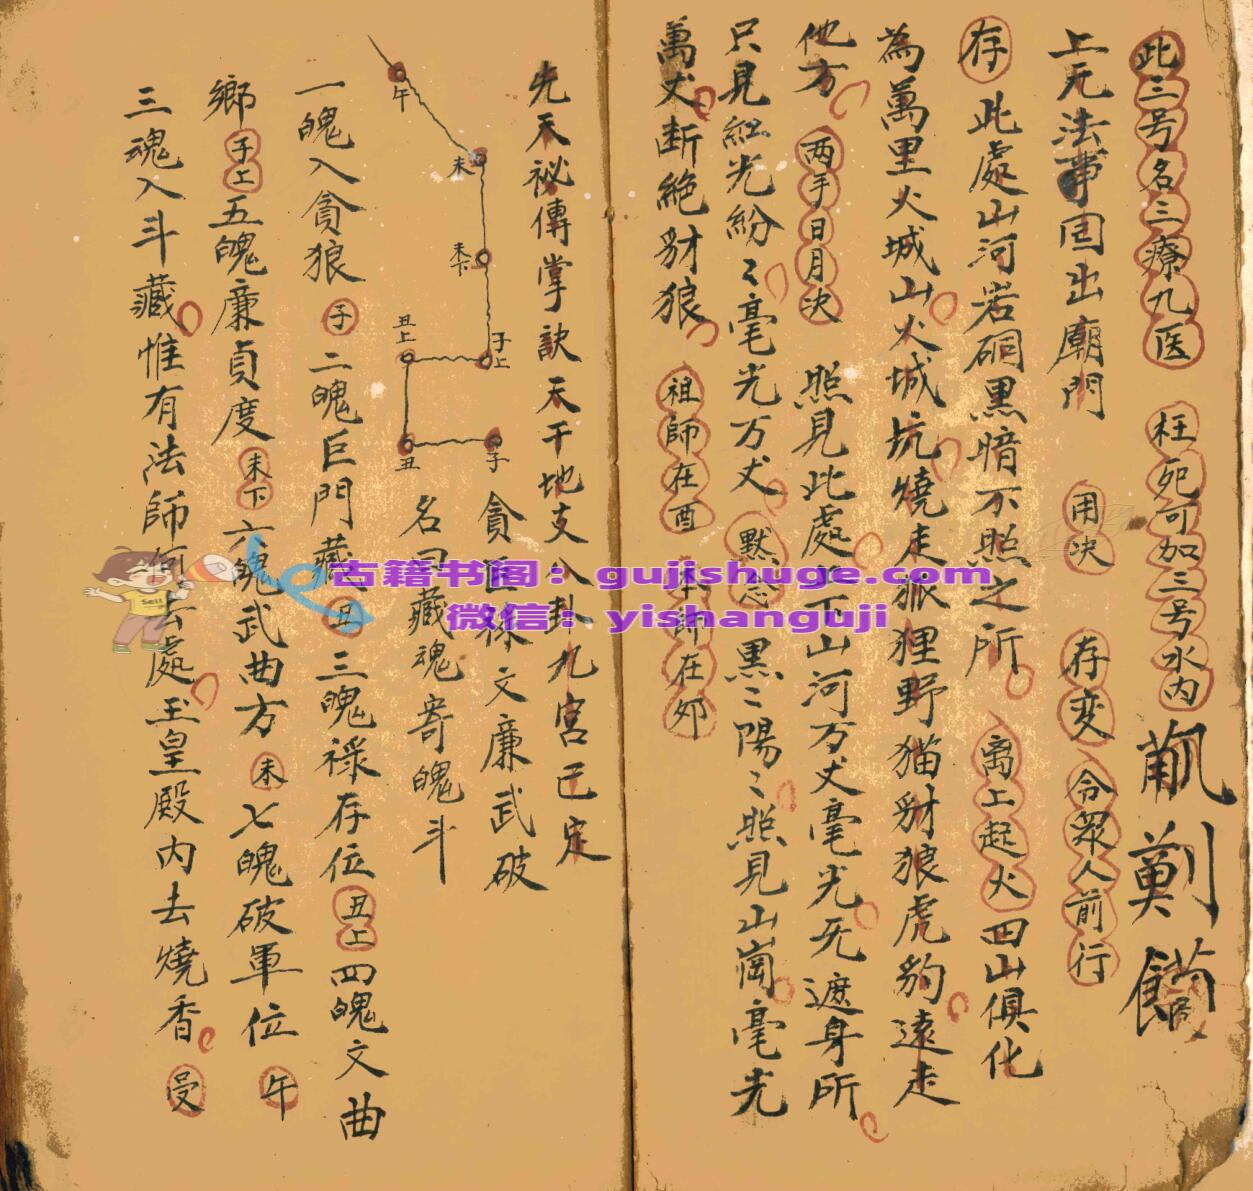 此三号名三療九医 枉死可加三号水内
上元法事回出廟門 用决 存变 令眾人前行
存 此處山河岩硐黑暗不照之所 离上起火四山俱化
為萬里火城山火城坑燒走狐狸野猫豺狼虎豹遠走
他方 两手日月决 照見此處 下山河万丈毫光无遮身所
只見紅光紛〻毫光万丈 黙念 黑〻陽〻照見山崗毫光
萬丈断絶豺狼 祖師在酉 本師在夘
先天祕傳掌訣天干地支八卦九宮已定
貪巨祿文廉武破
名曰藏魂寄魄斗
午
未
未下
子上
丑上
丑
子
一魄入貪狼 子 二魄巨門藏 丑 三魄祿存位 丑上 四魄文曲
鄉 子上 五魄廉貞度 未下 六魄武曲方 未 七魄破軍位 午
三魂入斗藏惟有法師何去處玉皇殿内去燒香
古籍书阁：gujishuge.com
微信：yishanguji